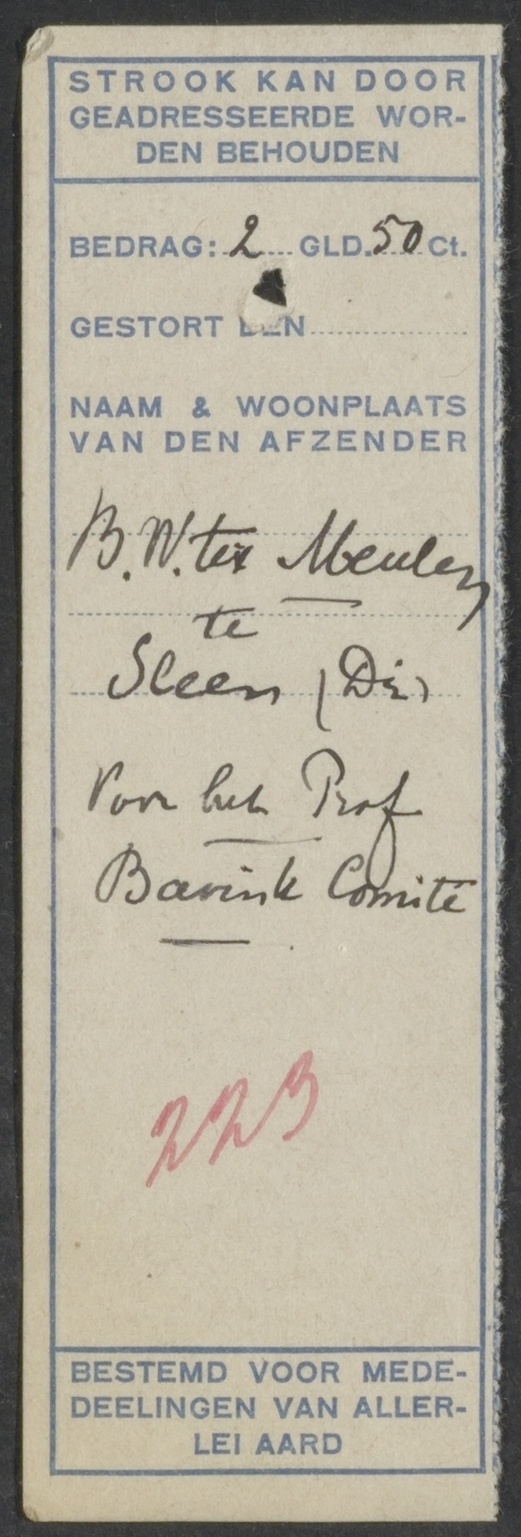 STROOK KAN DOOR
GEADRESSEERDE WOR-
DEN BEHOUDEN
BEDRAG: 2 GLD. 50 Ct.
GESTORT DEN
NAAM & WOONPLAATS
VAN DEN AFZENDER
B. W. ter Meulen
te
Sleen (Dr.)
Voor het Prof
Bavink Comité
223
BESTEMD VOOR MEDE-
DEELINGEN VAN ALLER-
LEI AARD